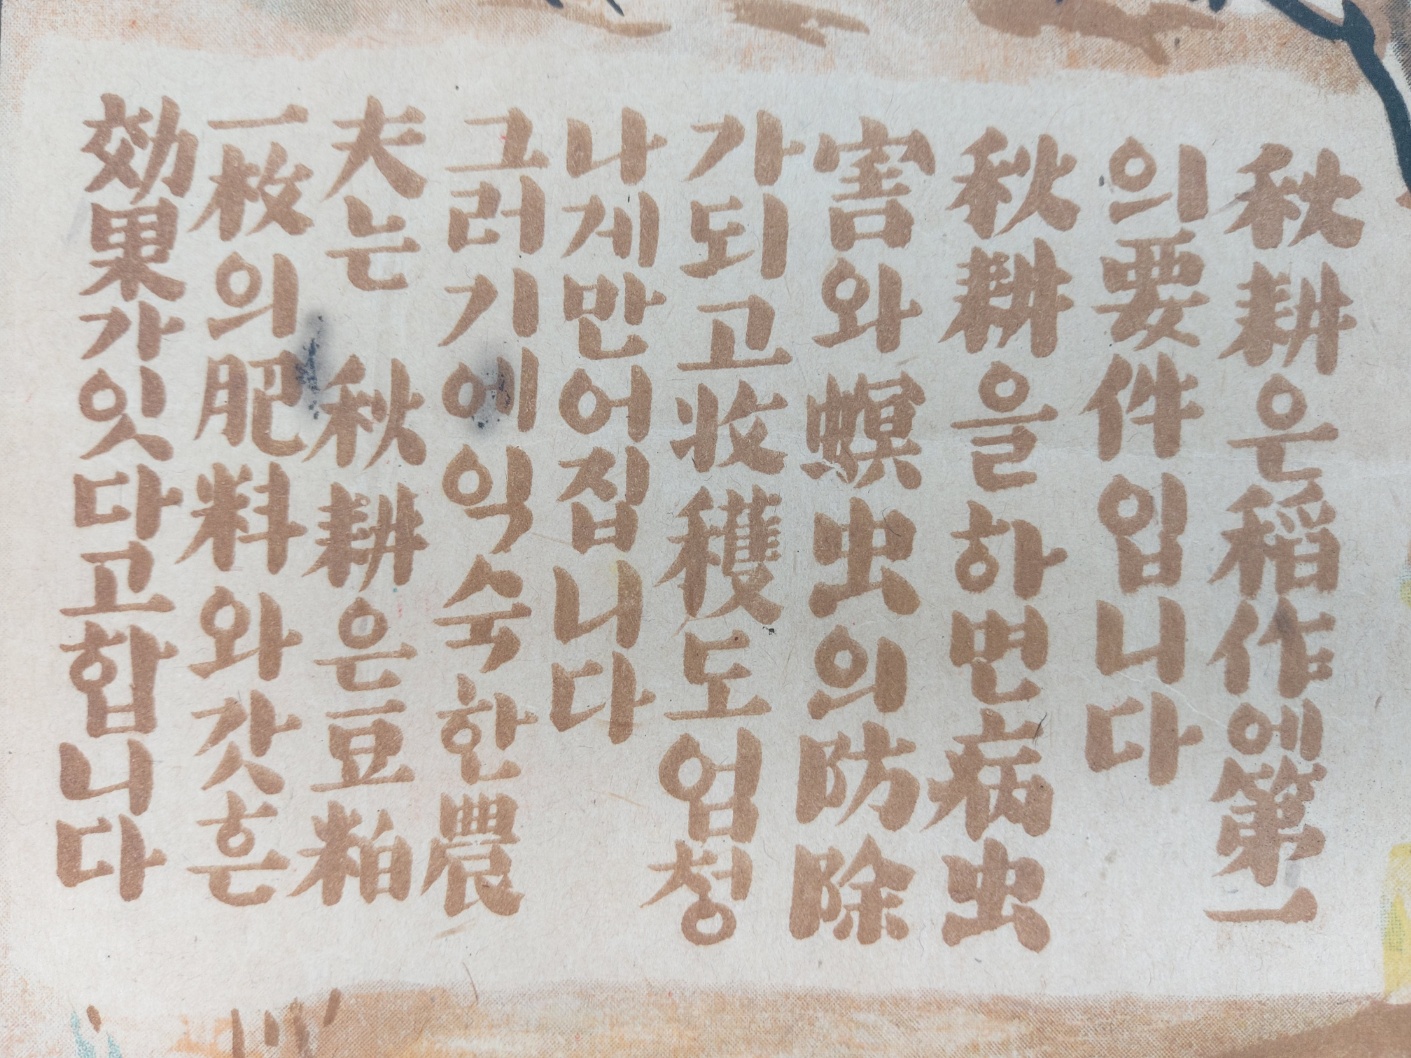 秋耕은稻作에第一
의要件입니다
秋耕을하면病虫
害와螟虫의防除
가되고收穫도엄청
나게만어집니다
그러기에익숙한農
夫는 秋耕은豆粕
一枚의肥料와갓흔
効果가잇다고합니다